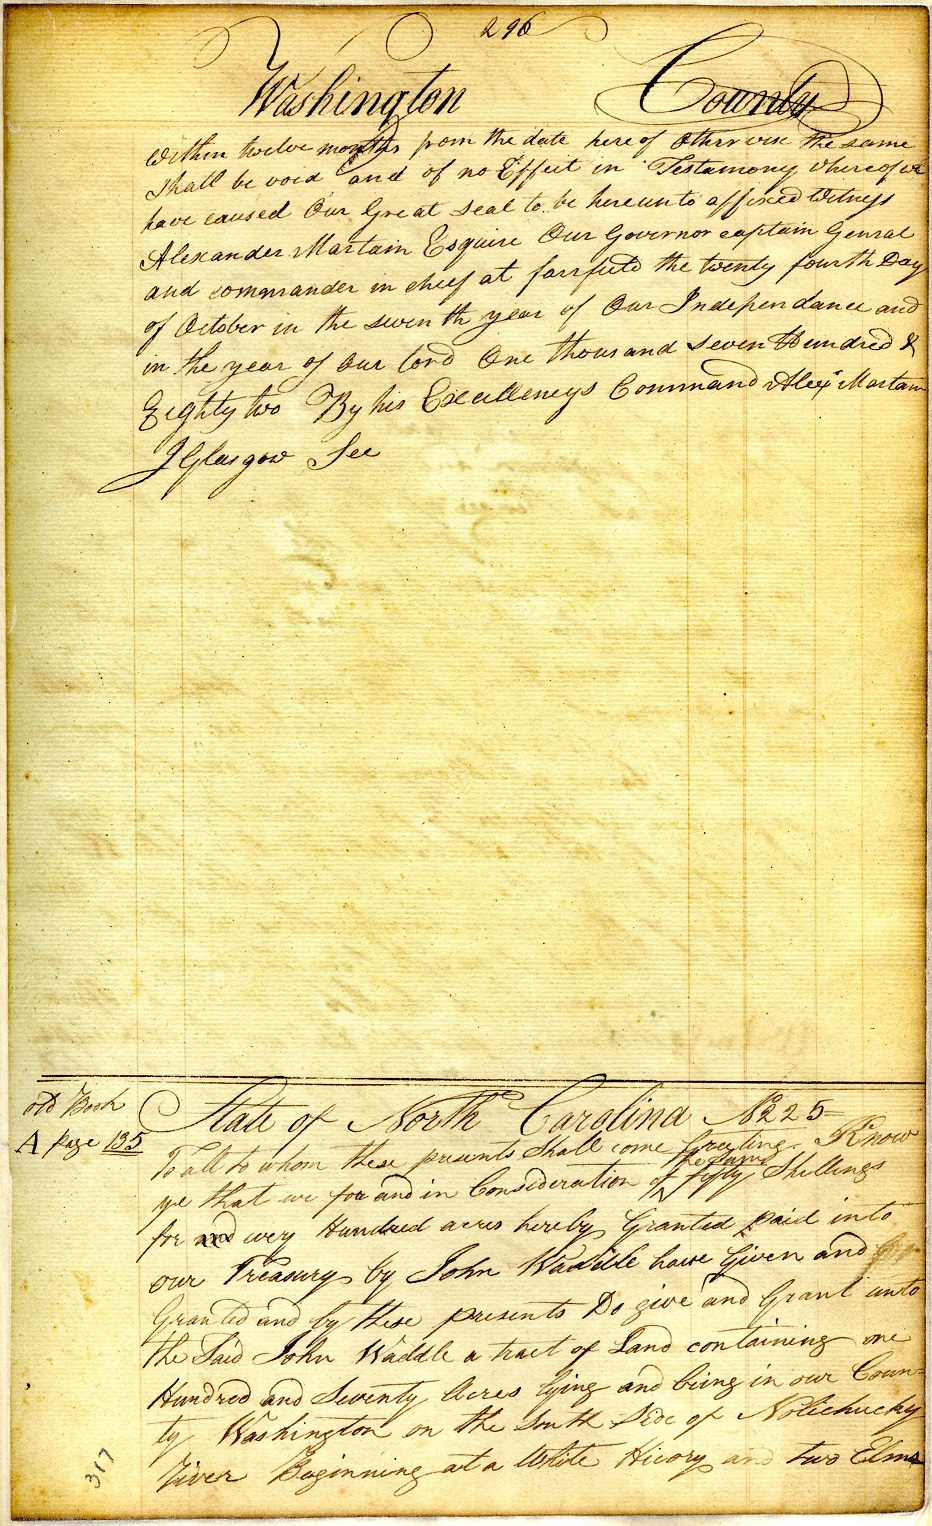 296
Washington County
within twelve months from the date here of otherwise the same
shall be void and of no Effect in Testamony whereof we
have caused Our Great seal to be hereunto affixed Witness
Alexander Martain Esquire Our Governor captain Genral
and commander in cheif at fairfield the twenty fourth Day
of October in the seventh year of Our Independance and
in the year of our lord One thousand seven Hundred &
Eighty two By his Excellencys Command Alexr Martain
J Glasgow Sec
old Book
A page 135
State of North Carolina No 225=
To all to whom these presents Shall come Greeting. Know
ye that we for and in Consideration of the sum fifty Shillings
for every Hundred acres hereby Granted paid into
our Treasury by John Waddle have Given and
Granted and by these presents Do give and Grant unto
the Said John Waddle a tract of Land containing one
Hundred and Seventy Acres lying and being in our Coun=
ty Washington on the South Side of Nolichucky
River Beginning at a White Hicory and two Elms
317